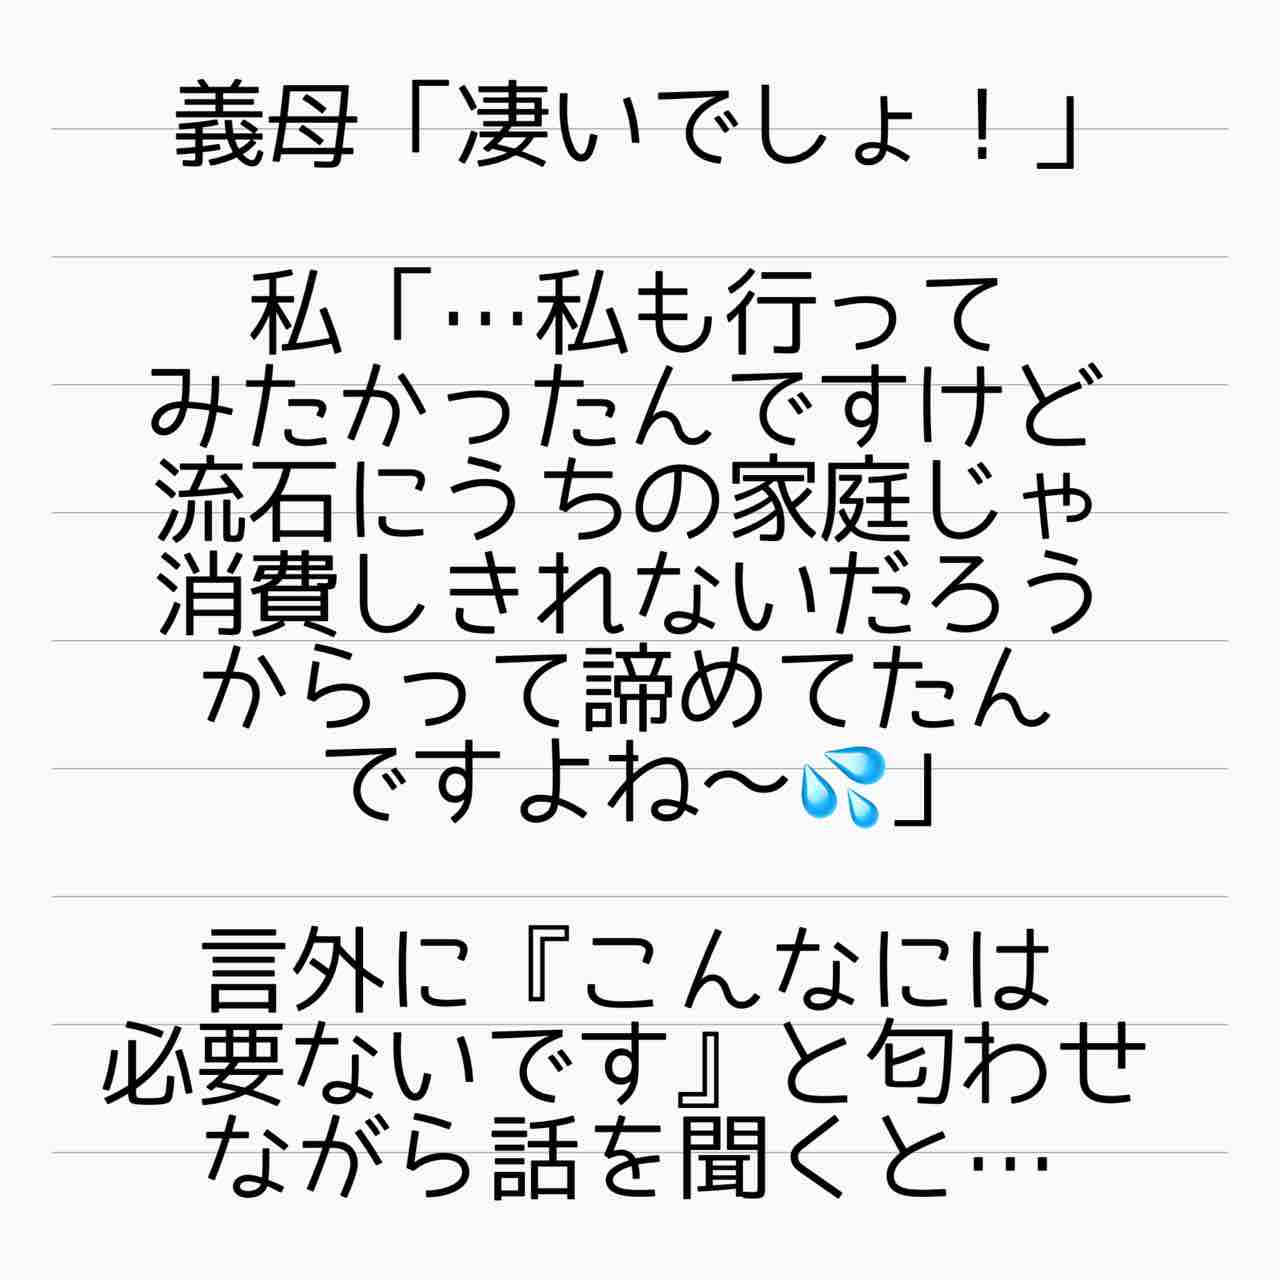 義母「凄いでしょ！」
私「…私も行って
みたかったんですけど
流石にうちの家庭じゃ
消費しきれないだろう
からって諦めてたん
ですよね〜💦」
言外に『こんなには
必要ないです』と匂わせ
ながら話を聞くと…